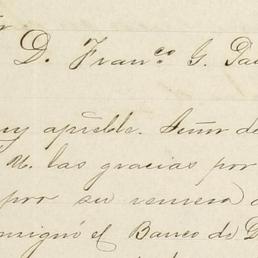 D. Franco. G. Pa
uy apreble. Señor de
U. las gracias por
por su remesa
onsignó el Banco de